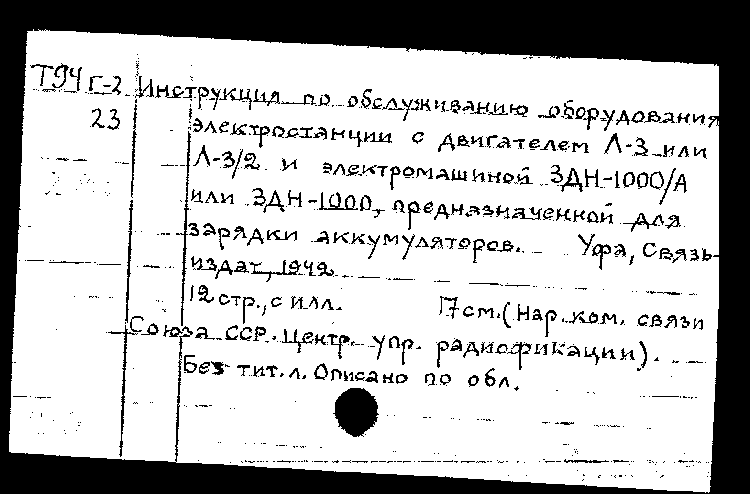 Т94 Г-2 Инструкция по обслуживанию оборудования
23 электростанции с двигателем Л-3 или
Л-3/2 и электромашиной ЗДН-1000/А
или ЗДН-1000, предназначенной для
зарядки аккумуляторов. Уфа, Связь-
издат, 1942
12 стр., с илл. 17 см. (Нар. ком. связи
Союза ССР. Центр. упр. радиофикации).
Без тит. л. Описано по обл.